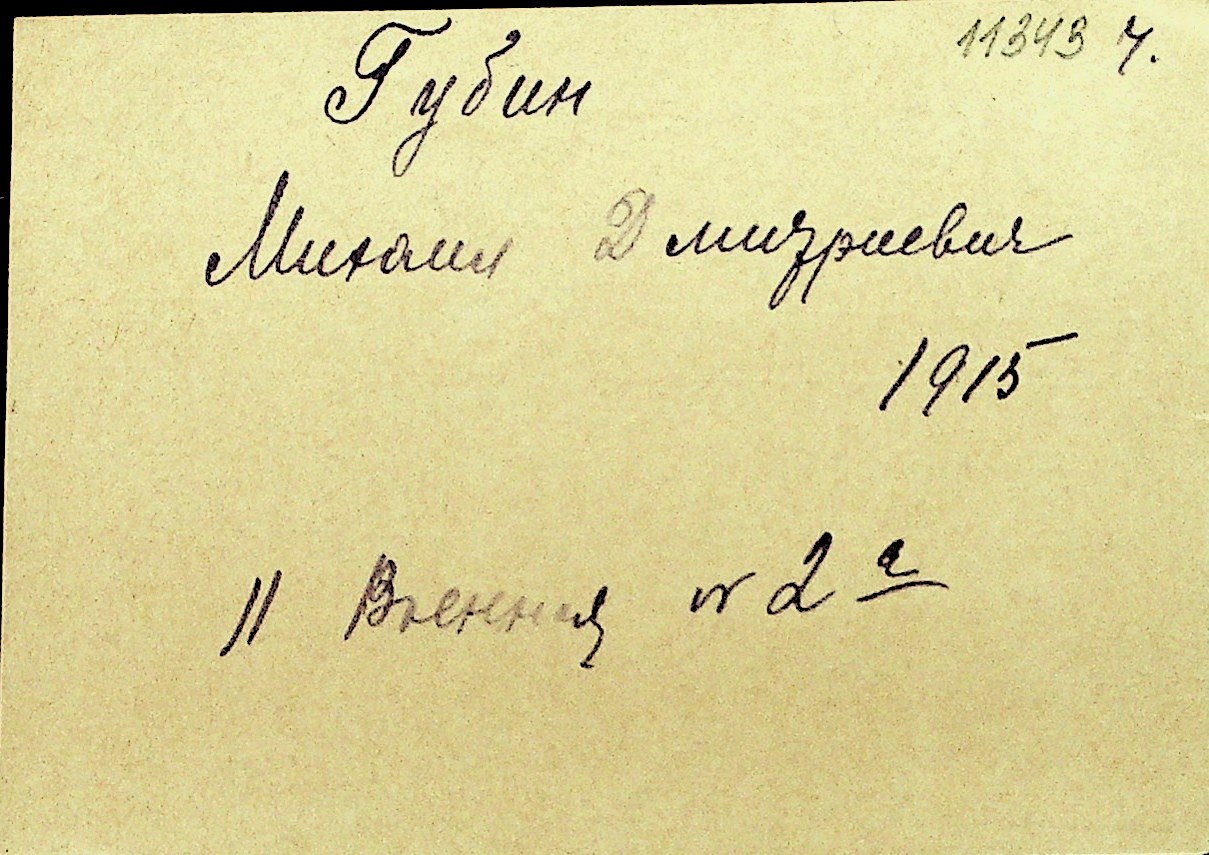 11343 ч.
Губин
Михаил Дмитриевич
1915
II Военная № 2 а